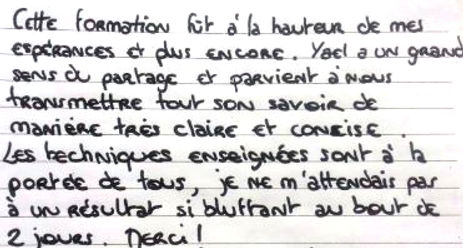 Cette formation fût à la hauteur de mes
espérances et plus encore. Yael a un grand
sens du partage et parvient à nous
transmettre tout son savoir de
manière très claire et concise.
Les techniques enseignées sont à la
portée de tous, je ne m'attendais pas
à un résultat si bluffant au bout de
2 jours. Merci !